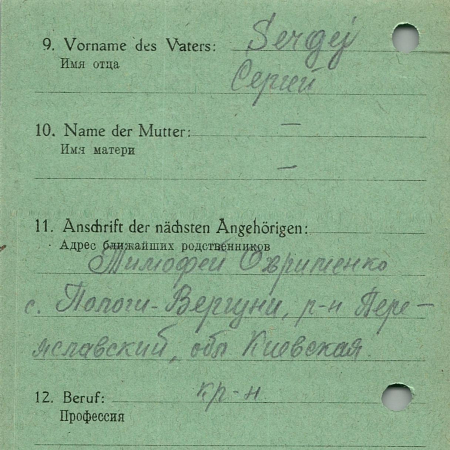 9. Vorname des Vaters: Sergej
Имя отца Сергей
10. Name der Mutter: —
Имя матери —
11. Anschrift der nächsten Angehörigen:
Адрес ближайших родственников
Тимофей Охрименко
с. Пологи-Вергуни, р-н Пере-
яславский, обл Киевская.
12. Beruf: кр-н
Профессия